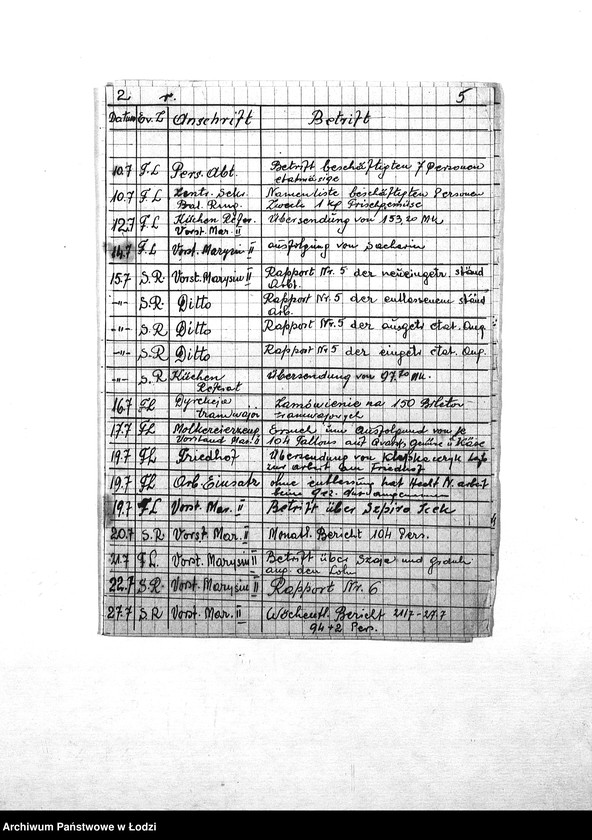 2 r. 5
Datum Ev.L Anschrift Betrift
10.7 F.L Pers. Abt. Betrift beschäftigten 7 Personen
etatmäsige
10.7 F.L Zentr. Sekr. Namenliste beschäftigten Personen
Bal. Ring. Zwecks 1 kg Frischgemüse
12.7 F.L Küchen Refer. Übersendung von 153,20 Mk
Vorst. Mar. II
14.7 F.L Vorst. Marysin II ausfolgung von Sacharin
15.7 S.R. Vorst. Marysin II Rapport Nr. 5 der neueingetr. ständ
Arb.
-"- S.R. Ditto Rapport Nr. 5 der entlassenem ständ
Arb.
-"- S.R. Ditto Rapport Nr. 5 der ausgetr. etat. Ang.
-"- S.R. Ditto Rapport Nr. 5 der eingetr. etat. Ang.
-"- S.R. Küchen Übersendung von 97.20 Mk.
Referat
16.7 F.L Dyrekcja Zamówienie na 150 Biletów
tramwajów tramwajowych
17.7 F.L Molkereierzeug Ersuch um Ausfolgund von je
Vorstand Mar. II 104 Tallons auf Gemüse u Käse
19.7 F.L Friedhof Übersendung von
zur arbeit am Friedhof
19.7 F.L Arb Einsatz ohne entlassung hat Hecht N. arbeit
19.7 F.L Vorst. Mar. II Betrift über Szpiro Icek
20.7 S.R Vorst. Mar. II Monatl. Bericht 104 Pers.
21.7 F.L. Vorst. Marysin II Betrift über Szaja und
den Lohn
22.7 S.R. Vorst. Marysin II Rapport Nr. 6
27.7 S.R Vorst. Mar. II Wöchentl. Bericht 21/7 - 27.7
94 + 2 Pers.
Archiwum Państwowe w Łodzi